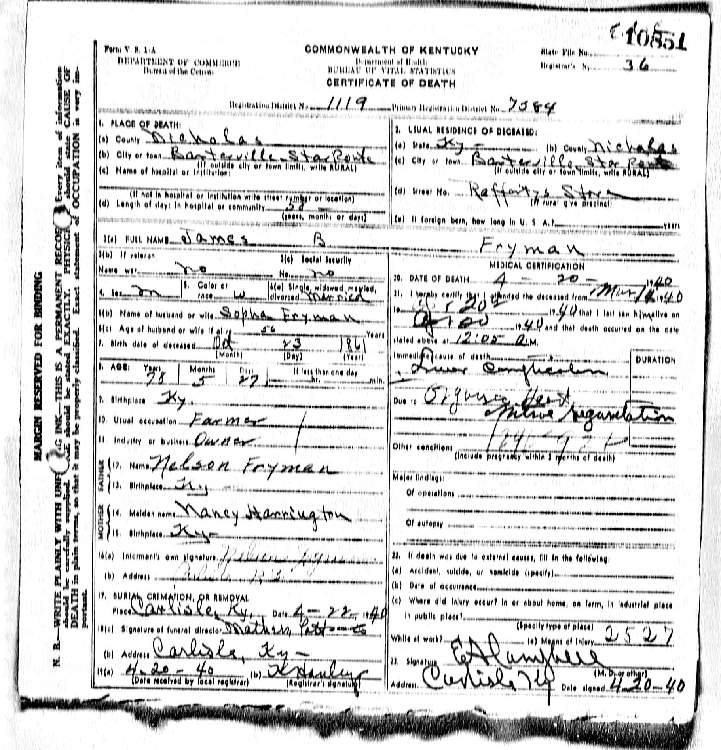 10851
Form V. S. 1-A
DEPARTMENT OF COMMERCE
Bureau of the Census
COMMONWEALTH OF KENTUCKY
Department of Health
BUREAU OF VITAL STATISTICS
CERTIFICATE OF DEATH
State File No.
Registrar's No. 36
Registration District No. 1119 Primary Registration District No. 7384
MARGIN RESERVED FOR BINDING
N. B.—WRITE PLAINLY WITH INK—THIS IS A PERMANENT Every item of information
should be carefully EXACTLY. should state CAUSE OF
DEATH in plain terms, so that it may be properly classified. Exact statement of OCCUPATION is very im-
portant.
1. PLACE OF DEATH:
(a) County Nicholas
(b) City or town Barterville Star Route
(If outside city or town limits, write RURAL)
(c) Name of hospital or institution:
(If not in hospital or institution write street number or location)
(d) Length of stay: In hospital or community
(years, month, or days)
2. USUAL RESIDENCE OF DECEASED:
(a) State Ky- (b) County Nicholas
(c) City or town Barterville Star Route
(If outside city or town limits, write RURAL)
(d) Street No. Store
(If rural give precinct)
(e) If foreign born, how long in U. S. A.? years
3(a) FULL NAME James B Fryman
3(b) If veteran 3(c) Social Security
Name war no No. no
4. Sex m 5. Color or race w 6(a) Single, widowed, married, divorced Married
6(b) Name of husband or wife Sopha Fryman
6(c) Age of husband or wife if alive 56 Years
7. Birth date of deceased Oct 23 1861
(Month) (Day) (Year)
8. AGE: Years Months Days If less than one day
78 5 27 hr. min.
9. Birthplace Ky.
10. Usual occupation Farmer
11. Industry or business Owner
FATHER
12. Name Nelson Fryman
13. Birthplace Ky-
MOTHER
14. Maiden name Nancy Harrington
15. Birthplace Ky-
16(a) Informant's own signature
(b) Address
17. BURIAL, CREMATION, OR REMOVAL
Place Carlisle, Ky. Date 4-22-1940
18(c) Signature of funeral director
(b) Address Carlisle, Ky-
19(a) 4-20-40 (b)
(Date received by local registrar) (Registrar's signature)
MEDICAL CERTIFICATION
20. DATE OF DEATH 4 - 20 - 1940
21. I hereby certify that I attended the deceased from 1940
to 1940 that I last saw him alive on
1940 and that death occurred on the date
stated above at 12:05 A.M.
Immediate cause of death DURATION
Due to
Other conditions
(Include pregnancy within 3 months of death)
Major findings:
Of operations
Of autopsy
22. If death was due to external causes, fill in the following:
(a) Accident, suicide, or homicide (specify)
(b) Date of occurrence
(c) Where did injury occur? In or about home, on farm, in industrial place
in public place?
(Specify type of place)
While at work? (e) Means of Injury 2527
23. Signature E A Campbell
(M. D. or other)
Address Carlisle Ky Date signed 4-20-40